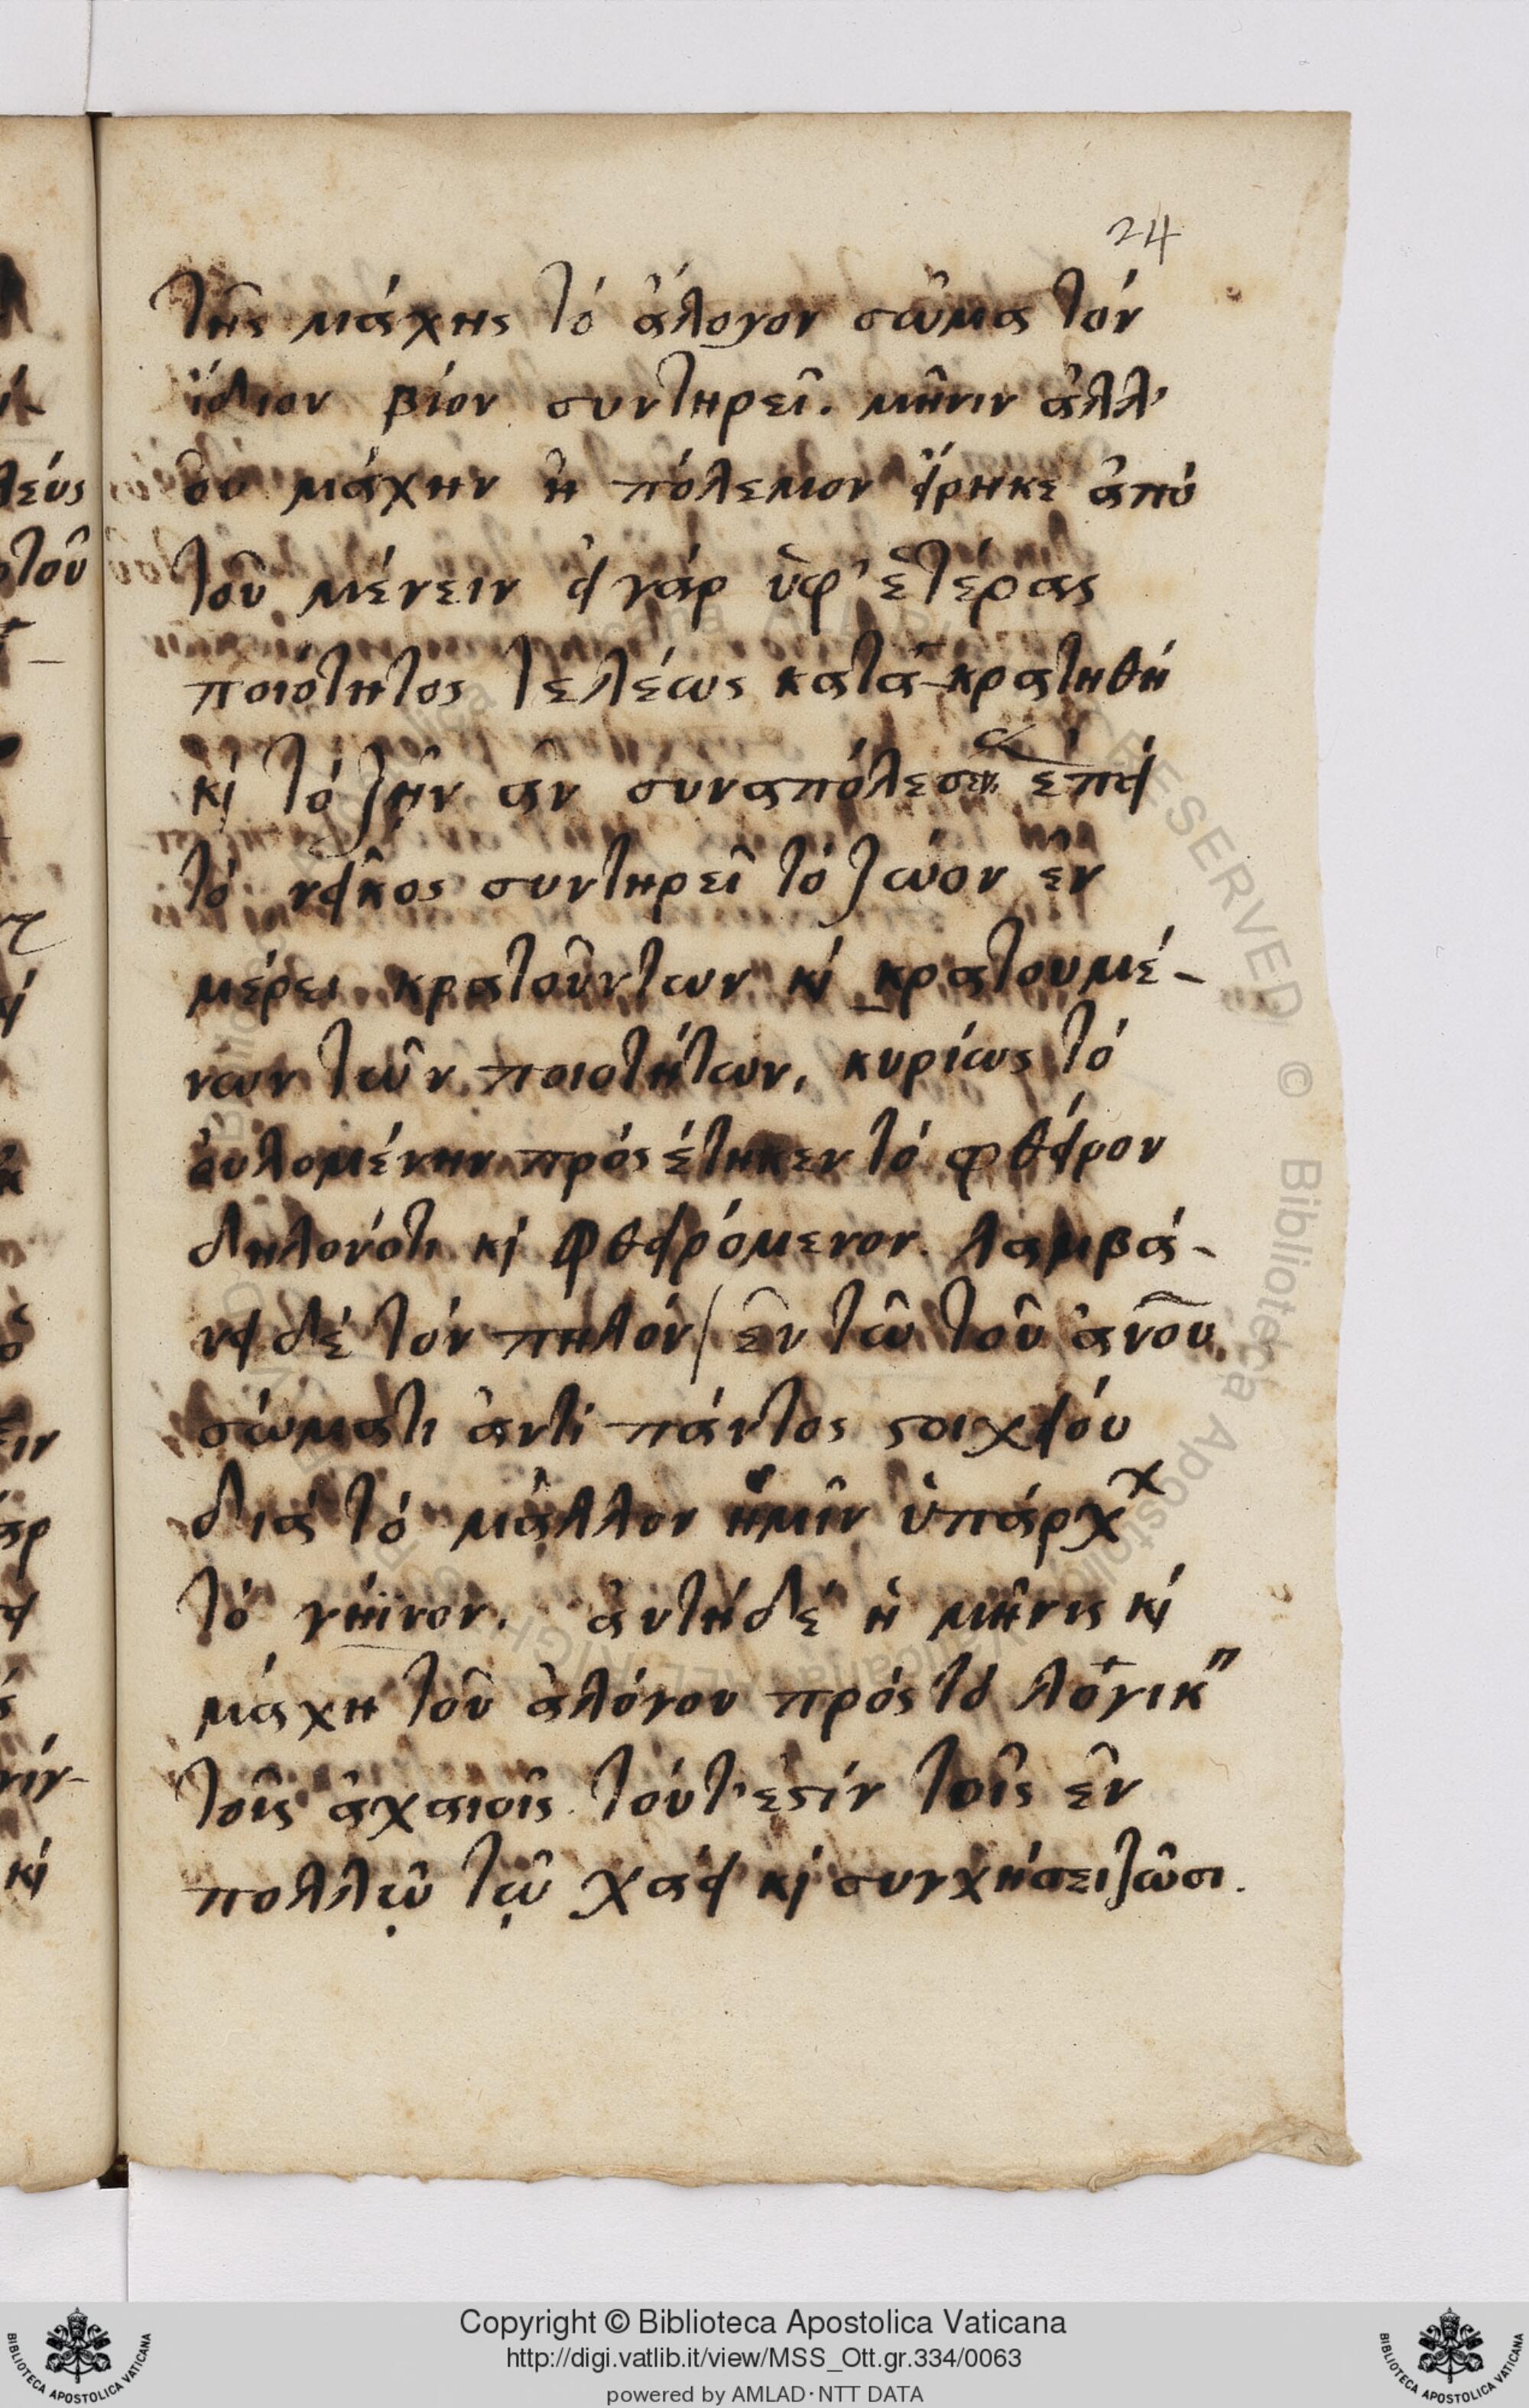 24
τῆς μάχης τό ἄλογον σῶμα τόν
ἴδιον βίον συντηρεῖ. μῆνιν ἀλλ'
ου μάχην ἢ πόλεμον εἴρηκε ἀπό
τοῦ μένειν εἰ γάρ ὑφ' ἑτέρας
ποιότητος τελέως κατα-κρατηθή
κỳ τό ζῆν ἂν συναπόλεσεν ἐπεί
τό νεῖκος συντηρεῖ τό ζώον ἐν
μέρει κρατοῦντων κỳ κρατουμέ-
νων τῶν ποιοτήτων, κυρίως τό
ουλομένην πρόςέτηκεν τό φθείρον
δηλονότι κỳ φθειρόμενον. λαμβά-
νει δέ τόν πηλόν/ ἐν τῶ τοῦ ἀνου
σώματι ἀντί πάντος ϛοιχείου
διά τό μᾶλλον ἡμῖν ὑπάρχ
τό γήϊνον. ἀυτήδέ ἡ μῆνις κỳ
μάχη τοῦ ἀλόγου πρός τό λόγικ
τοῖς ἀχαιοῖς τούτ'εϛίν τοῖς ἐν
πολλῷ τῷ χάει κỳ συγχήσειζῶσι.
Copyright © Biblioteca Apostolica Vaticana
http://digi.vatlib.it/view/MSS_Ott.gr.334/0063
powered by AMLAD·NTT DATA
BIBLIOTECA APOSTOLICA VATICANA
BIBLIOTECA APOSTOLICA VATICANA